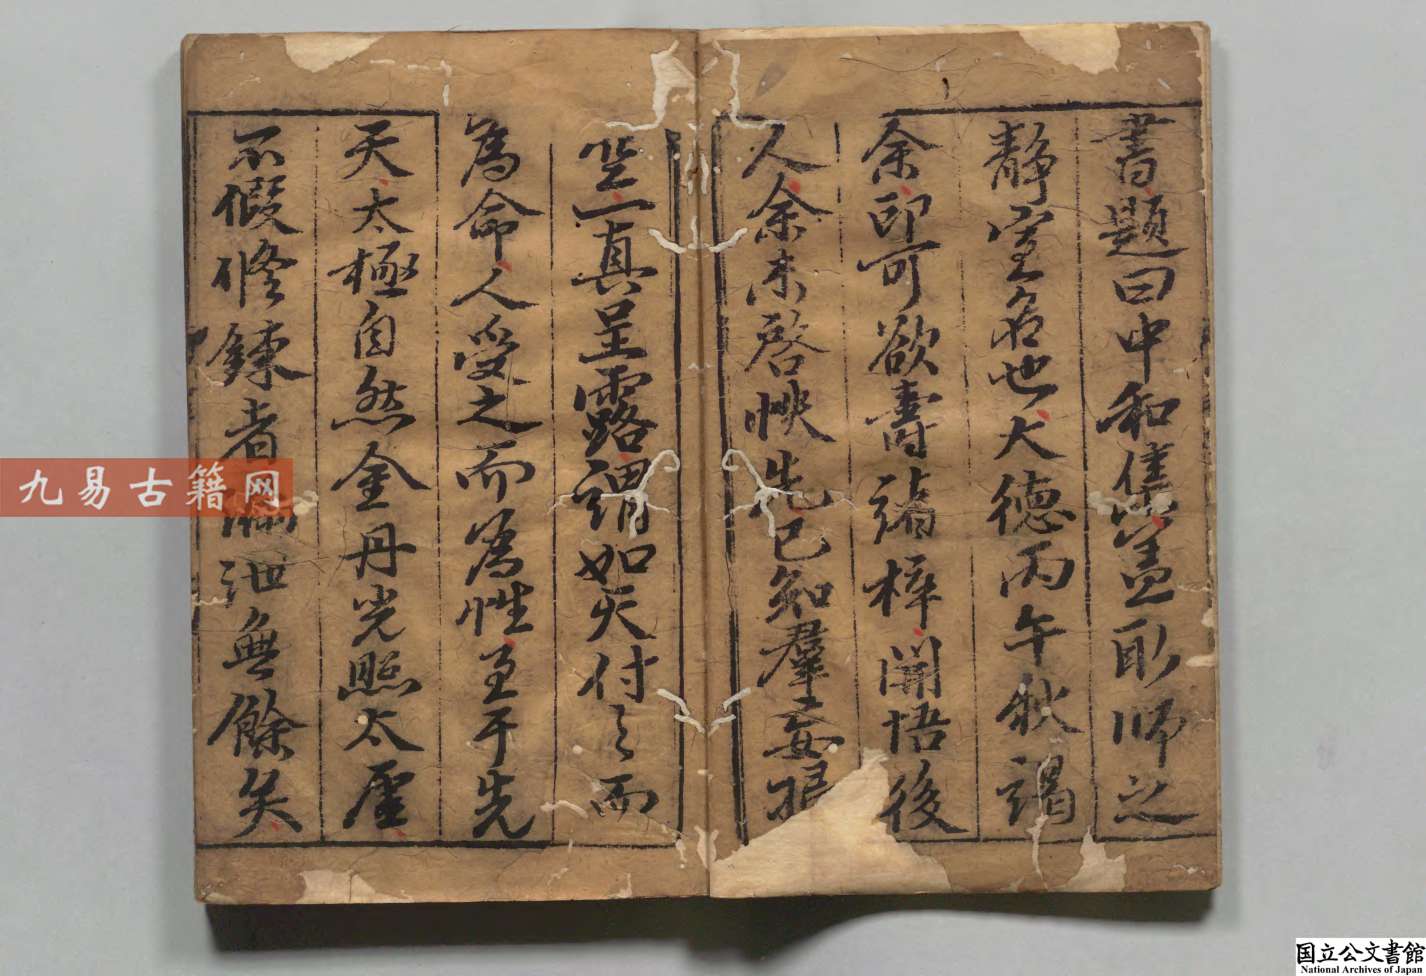 書題曰中和集蓋取師之
靜室名也大德丙午秋謁
余印可欲壽諸梓開悟後
人余未啓帙先已知羣妄掃
空一真呈露謂如天付之而
為命人受之而為性至于先
天太極自然金丹光照太虛
不假脩鍊者漏泄無餘矣
九易古籍网
国立公文書館
National Archives of Japan